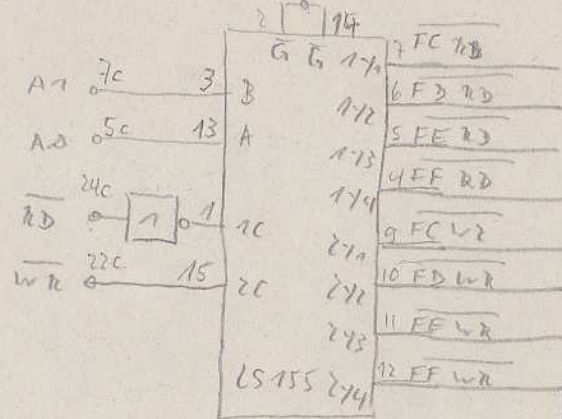 2 14
G̅ G̅ 1Y1 7 F̅C̅ R̅D̅
A1 7c 3 B 1Y2 6 F̅D̅ R̅D̅
A0 5c 13 A 1Y3 5 F̅E̅ R̅D̅
1Y4 4 F̅F̅ R̅D̅
R̅D̅ 24c 1 1 1C 2Y1 9 F̅C̅ W̅R̅
W̅R̅ 22c 15 2C 2Y2 10 F̅D̅ W̅R̅
2Y3 11 F̅E̅ W̅R̅
LS155 2Y4 12 F̅F̅ W̅R̅